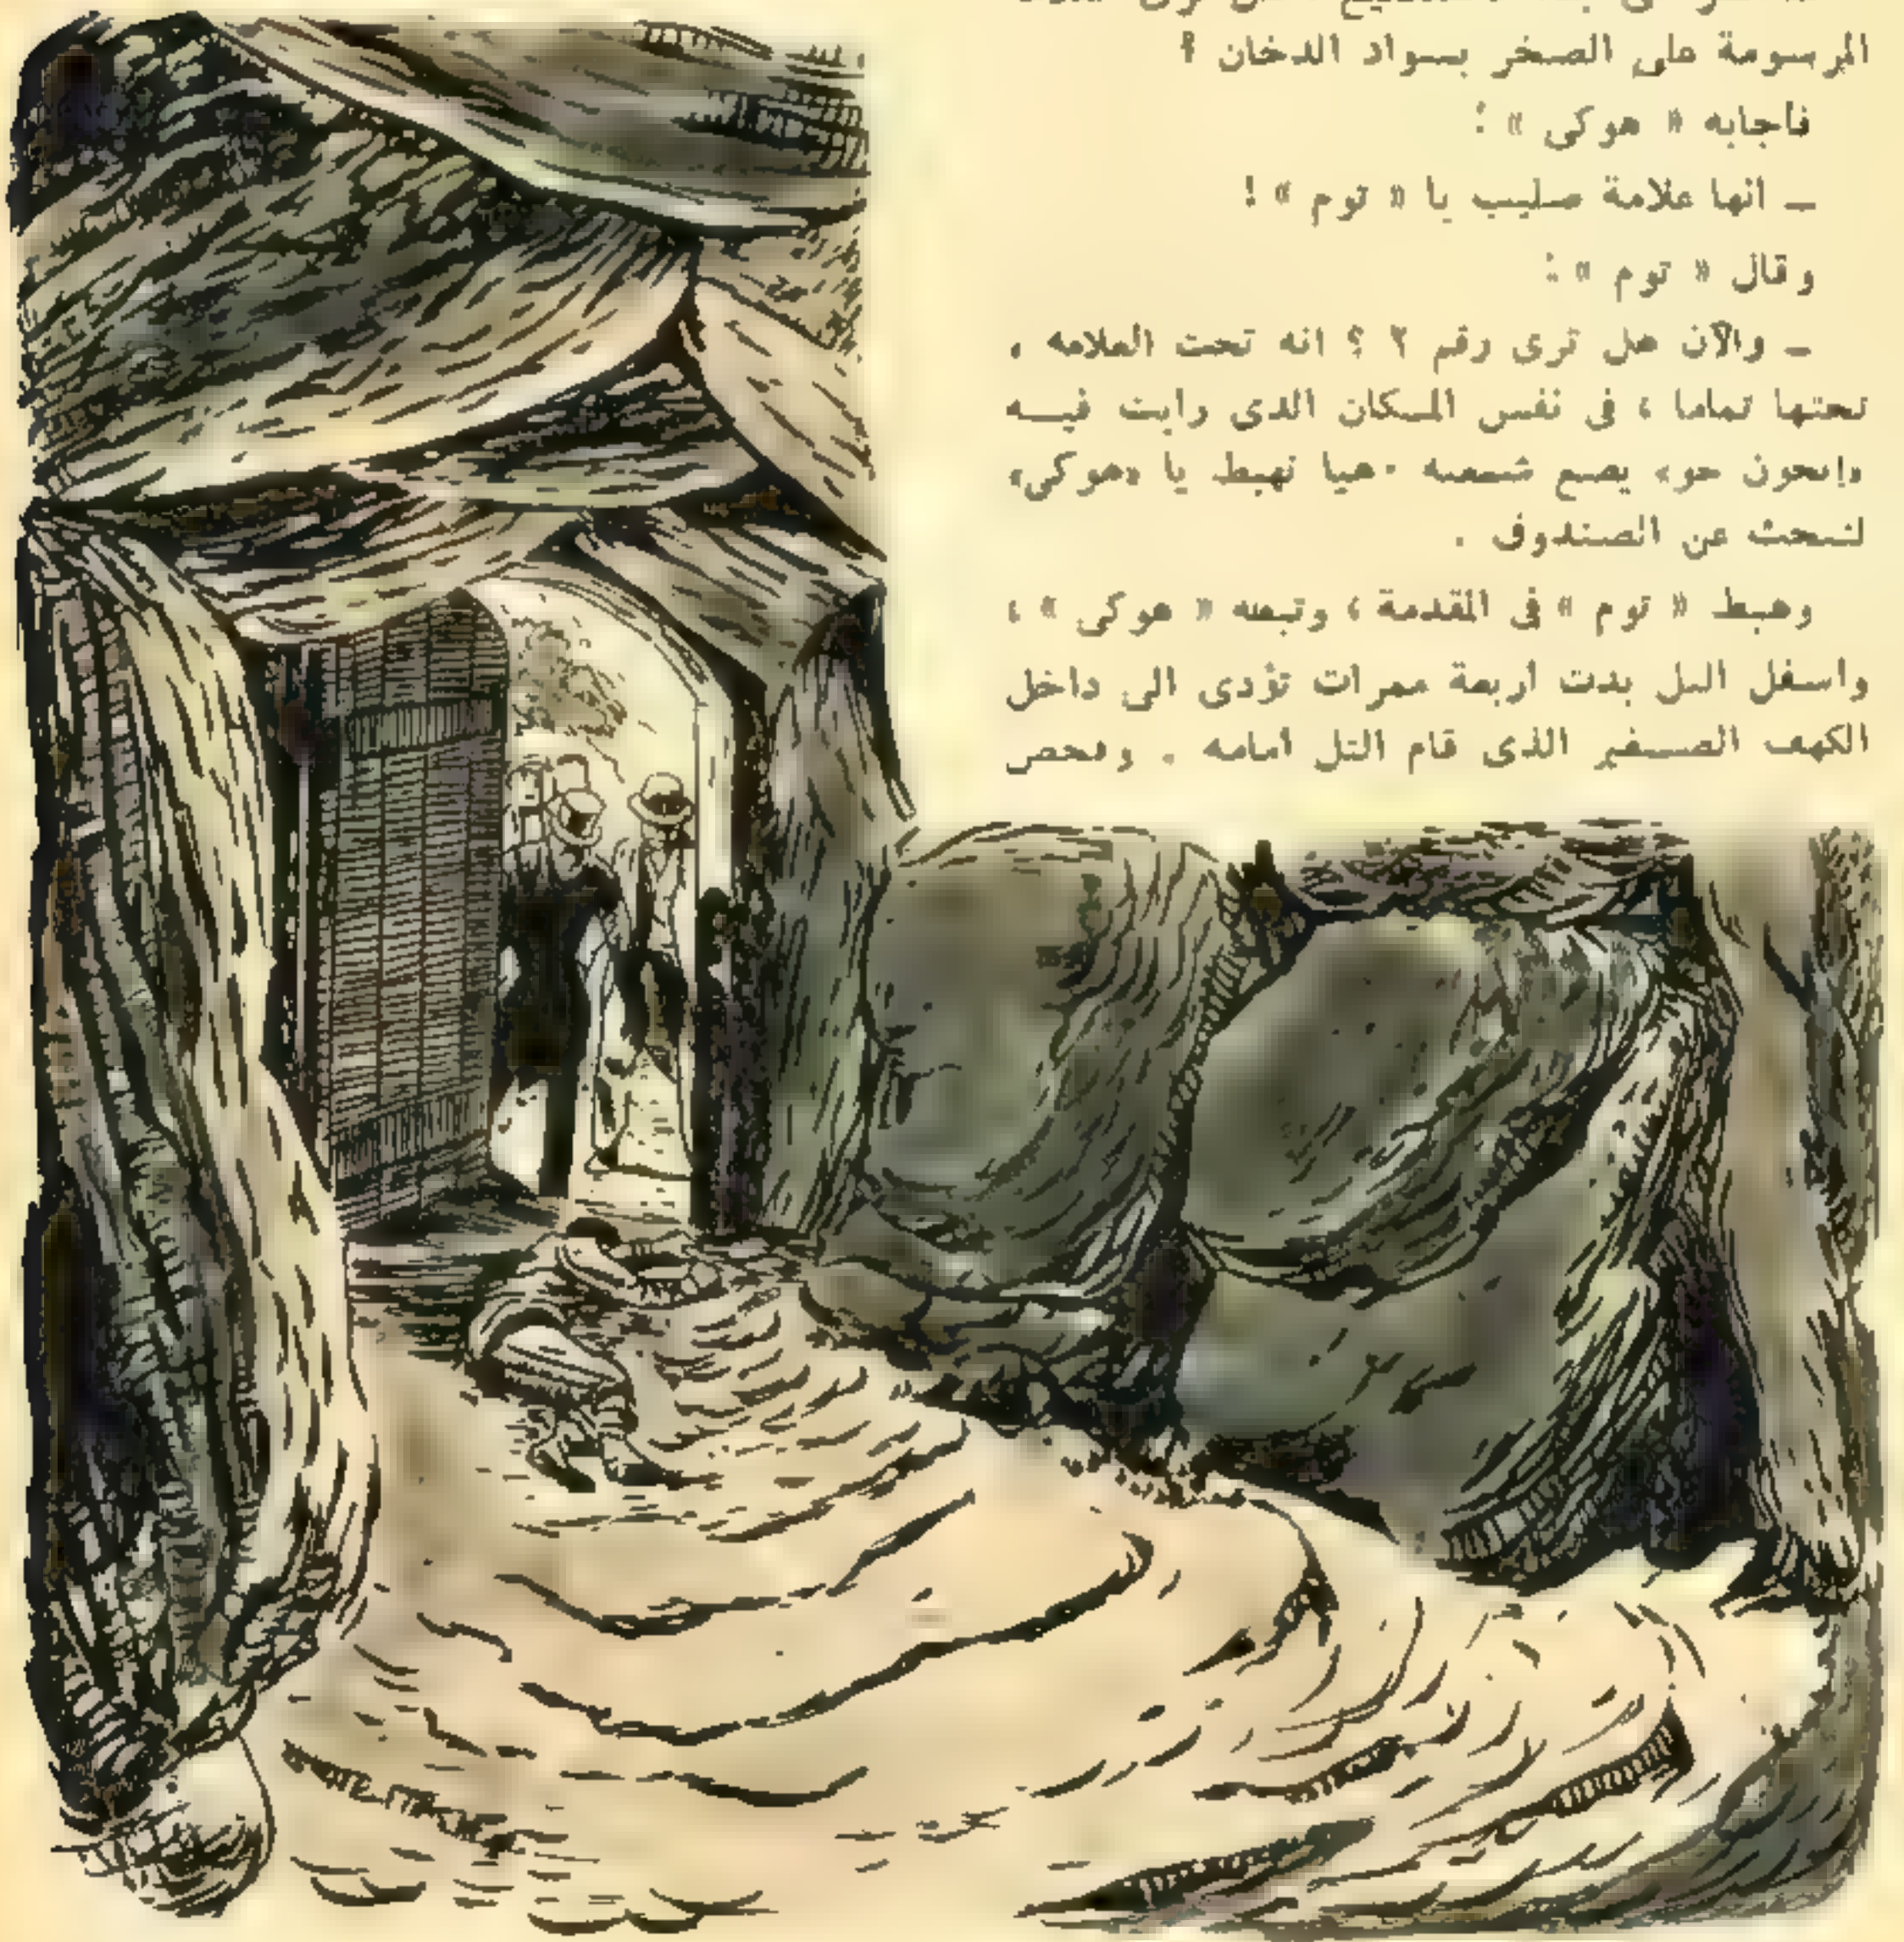 المرسومة على الصخر بسواد الدخان ؟
فأجابه « هوكى » :
ــ انها علامة صليب يا « توم » !
وقال « توم » :
ــ والآن هل ترى رقم ٢ ؟ انه تحت العلامه ،
تحتها تماما ، فى نفس المكان الذى رايت فيــه
«إنجون جو» يضع شمعته . هيا نهبط يا «هوكى»
لنبحث عن الصندوق .
وهبط « توم » فى المقدمة ، وتبعه « هوكى » ،
واسفل التل بدت أربعة ممرات تؤدى الى داخل
الكهف الصــغير الذى قام التل أمامه . وفحص